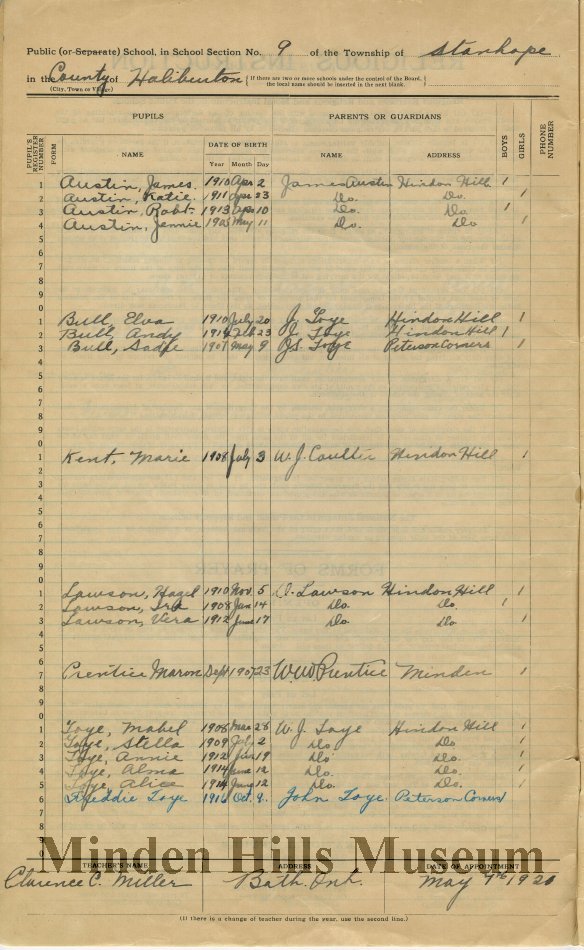 Public (or Separate) School, in School Section No. 9 of the Township of Stanhope
in the County of Haliburton (If there are two or more schools under the control of the Board, the local name should be inserted in the next blank.)
(City, Town or Village)
PUPILS PARENTS OR GUARDIANS
PUPIL'S REGISTER NUMBER FORM NAME DATE OF BIRTH Year Month Day NAME ADDRESS BOYS GIRLS PHONE NUMBER
1 Austin, James 1910 Apr 2 James Austin Hindon Hill 1
2 Austin, Katie 1911 Apr 23 Do. Do. 1
3 Austin, Robt. 1913 Apr 10 Do. Do. 1
4 Austin, Jennie 1905 May 11 Do. Do 1
5
6
7
8
9
0
1 Bull, Elva 1910 July 20 J. Toye Hindon Hill 1
2 Bull, Andy 1914 Feb 23 J. Toye Hindon Hill 1
3 Bull, Sadie 1907 May 9 J.S. Toye Peterson Corners 1
4
5
6
7
8
9
0
1 Kent, Marie 1908 July 3 W. J. Coulter Hindon Hill 1
2
3
4
5
6
7
8
9
0
1 Lawson, Hazel 1910 Nov. 5 D. Lawson Hindon Hill 1
2 Lawson, Ira 1908 Jan 14 Do. Do. 1
3 Lawson, Vera 1912 June 17 Do. Do 1
4
5
6
7 Prentice Maron Sept 1907 23 W.W. Prentice Minden 1
8
9
0
1 Toye, Mabel 1908 Mar 28 W. J. Toye Hindon Hill 1
2 Toye, Stella 1909 2 Do Do 1
3 Toye, Annie 1912 Jan 19 Do Do 1
4 Toye, Alma 1914 June 12 Do. Do 1
5 Toye, Alice 1914 June 12 Do. Do 1
6 Freddie Toye 1916 Oct. 9. John Toye. Peterson Corners
7
8
9
Minden Hills Museum
TEACHER'S NAME ADDRESS DATE OF APPOINTMENT
Clarence C. Miller Bath, Ont. May 7th 1920
(If there is a change of teacher during the year, use the second line.)